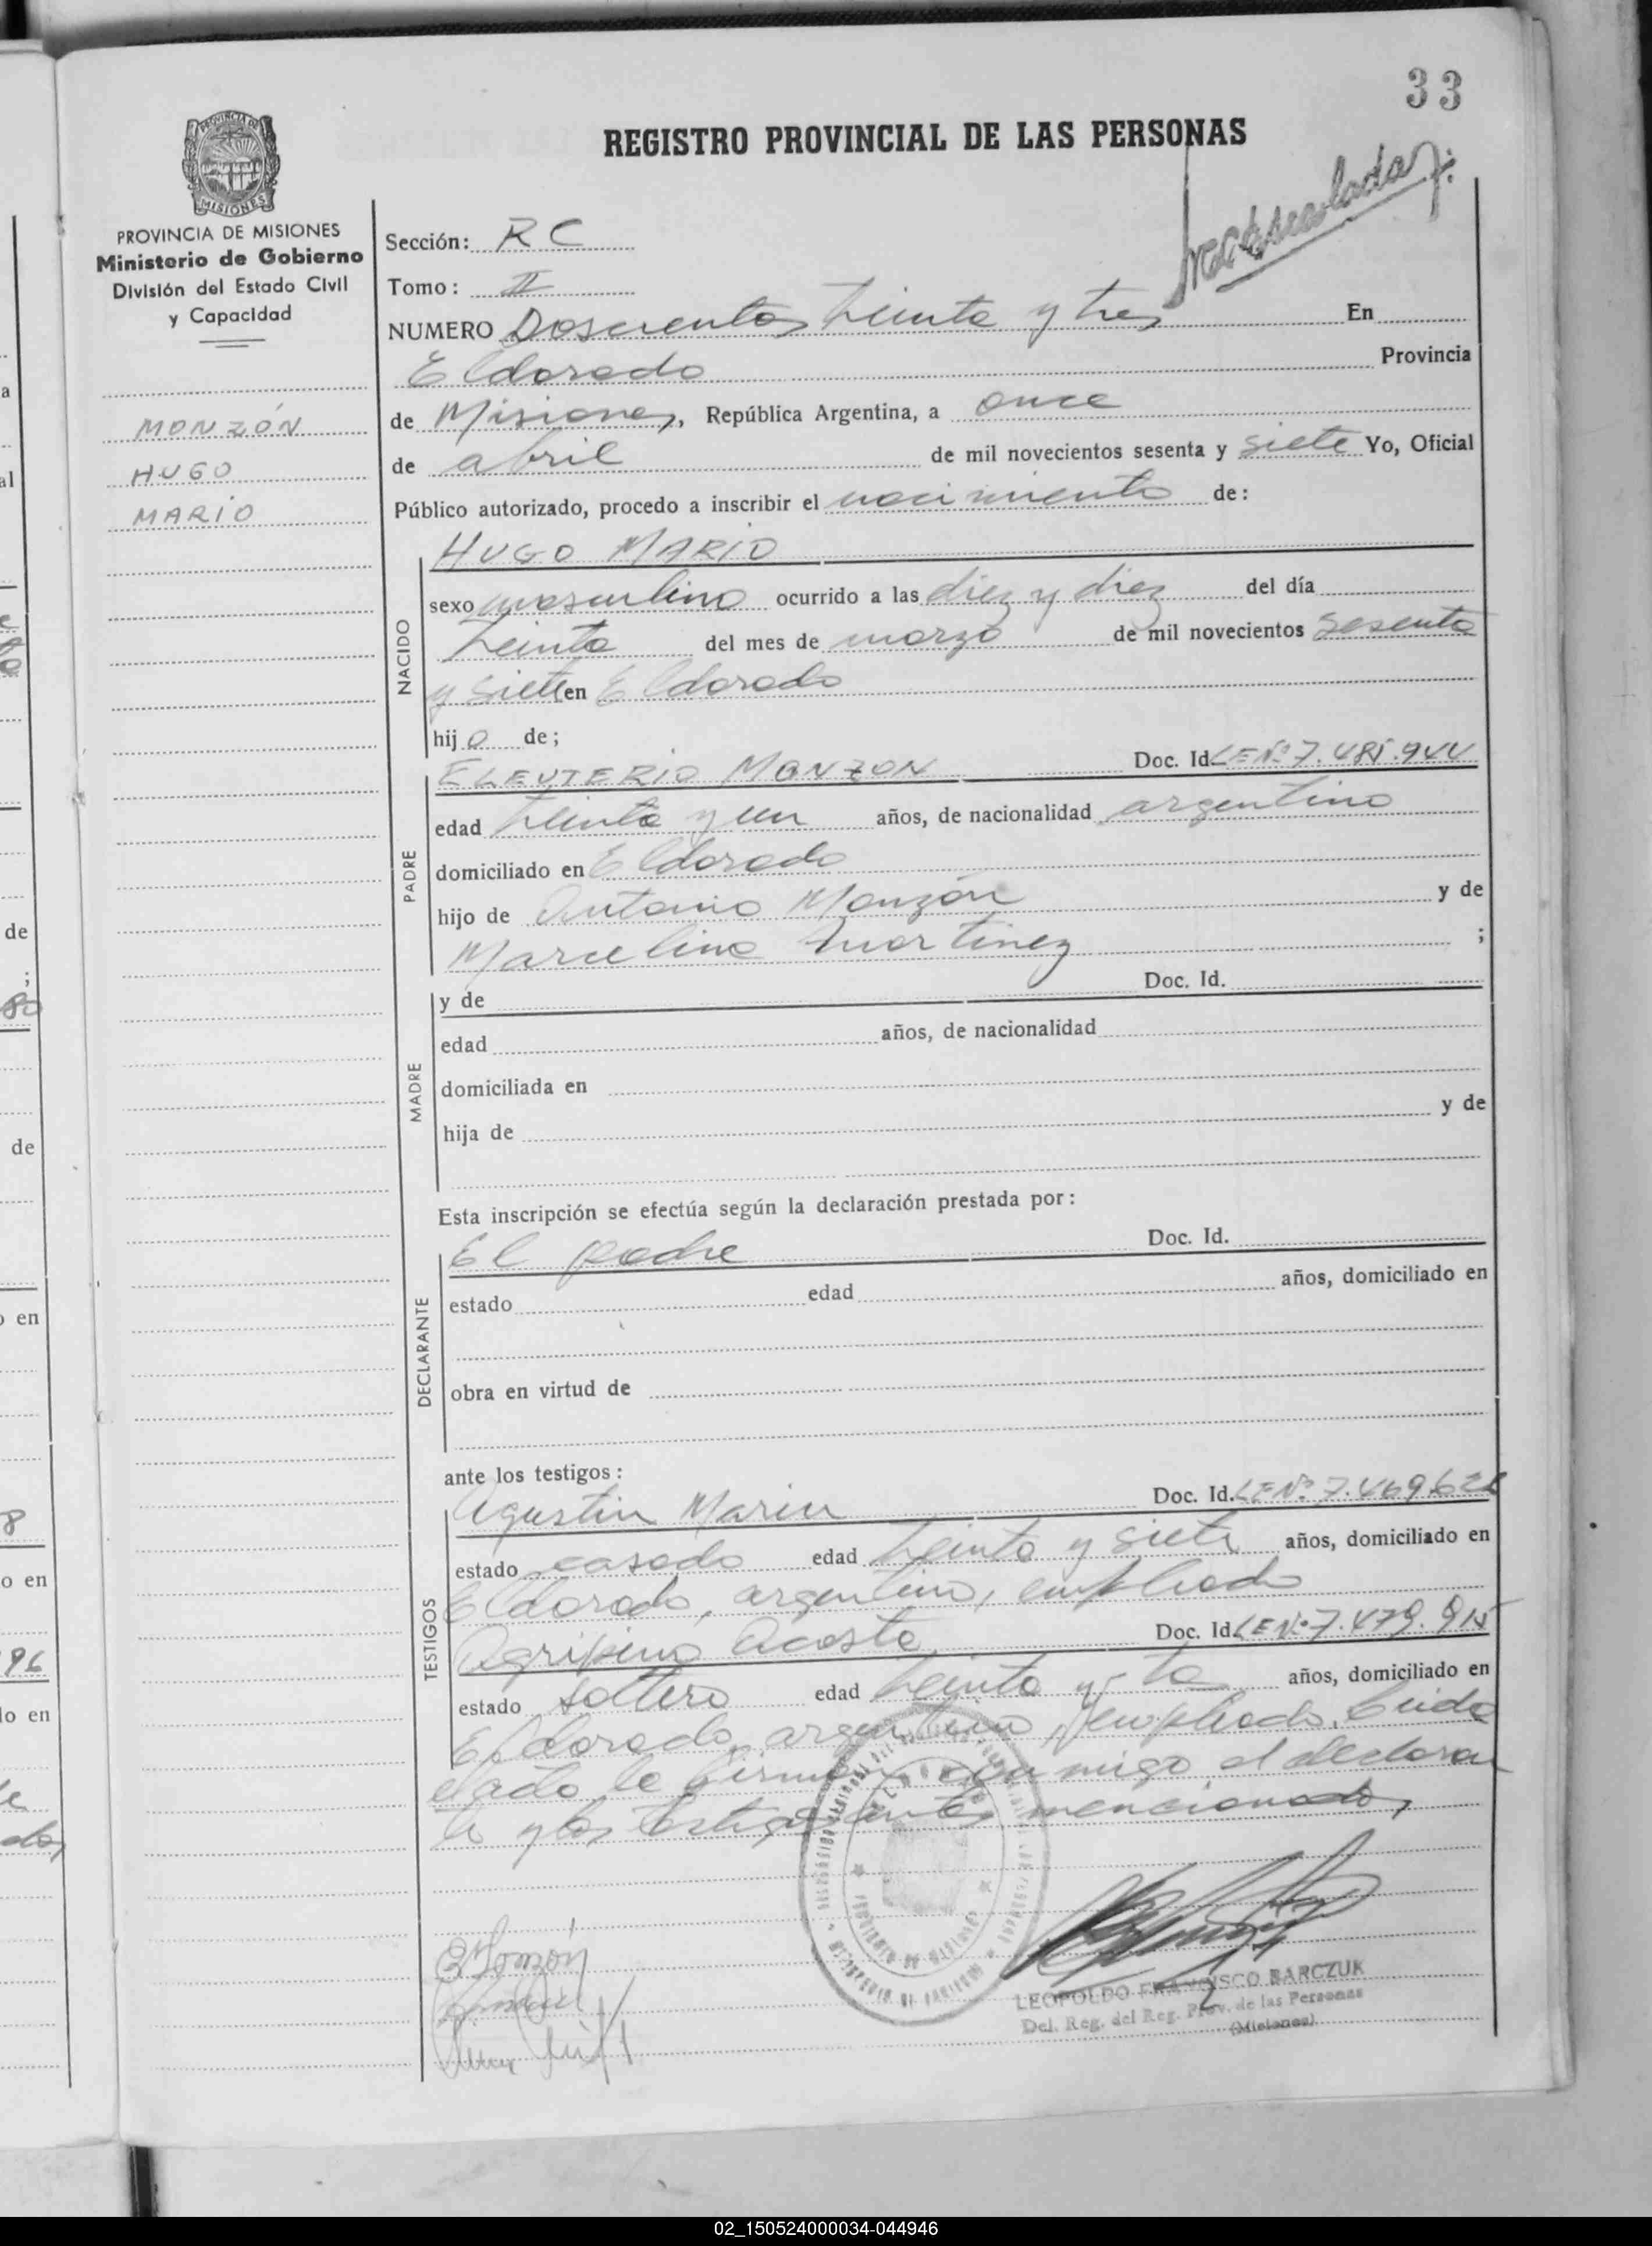 33
REGISTRO PROVINCIAL DE LAS PERSONAS
PROVINCIA DE
MISIONES
PROVINCIA DE MISIONES
Ministerio de Gobierno
División del Estado Civil
y Capacidad
MONZÓN
HUGO
MARIO
Sección: R C
Tomo: II
NUMERO Doscientos treinta y tres En
Eldorado Provincia
de Misiones, República Argentina, a once
de abril de mil novecientos sesenta y siete Yo, Oficial
Público autorizado, procedo a inscribir el nacimiento de:
HUGO MARIO
NACIDO
sexo masculino ocurrido a las diez y diez del día
treinta del mes de marzo de mil novecientos sesenta
y siete en Eldorado
hijo de;
ELEUTERIO MONZON Doc. Id. LE Nº 7.485.944
PADRE
edad treinta y un años, de nacionalidad argentino
domiciliado en Eldorado
hijo de Antonio Monzón y de
Marcelina Martinez ;
y de Doc. Id.
MADRE
edad años, de nacionalidad
domiciliada en
hija de y de
Esta inscripción se efectúa según la declaración prestada por:
El padre Doc. Id.
DECLARANTE
estado edad años, domiciliado en
obra en virtud de
ante los testigos:
Agustin Marin Doc. Id. LE Nº 7.469.62
TESTIGOS
estado casado edad treinta y siete años, domiciliado en
Eldorado, argentino, empleado
Agripino Acosta Doc. Id. LE Nº 7.479.915
estado soltero edad treinta y años, domiciliado en
Eldorado, argentino, empleado. Leida
el acto la firman conmigo el declaran
te y los testigos antes mencionados
EMonzón
LEOPOLDO FRANCISCO BARCZUK
Del. Reg. del Reg. Prov. de las Personas
(Misiones)
02_150524000034-044946